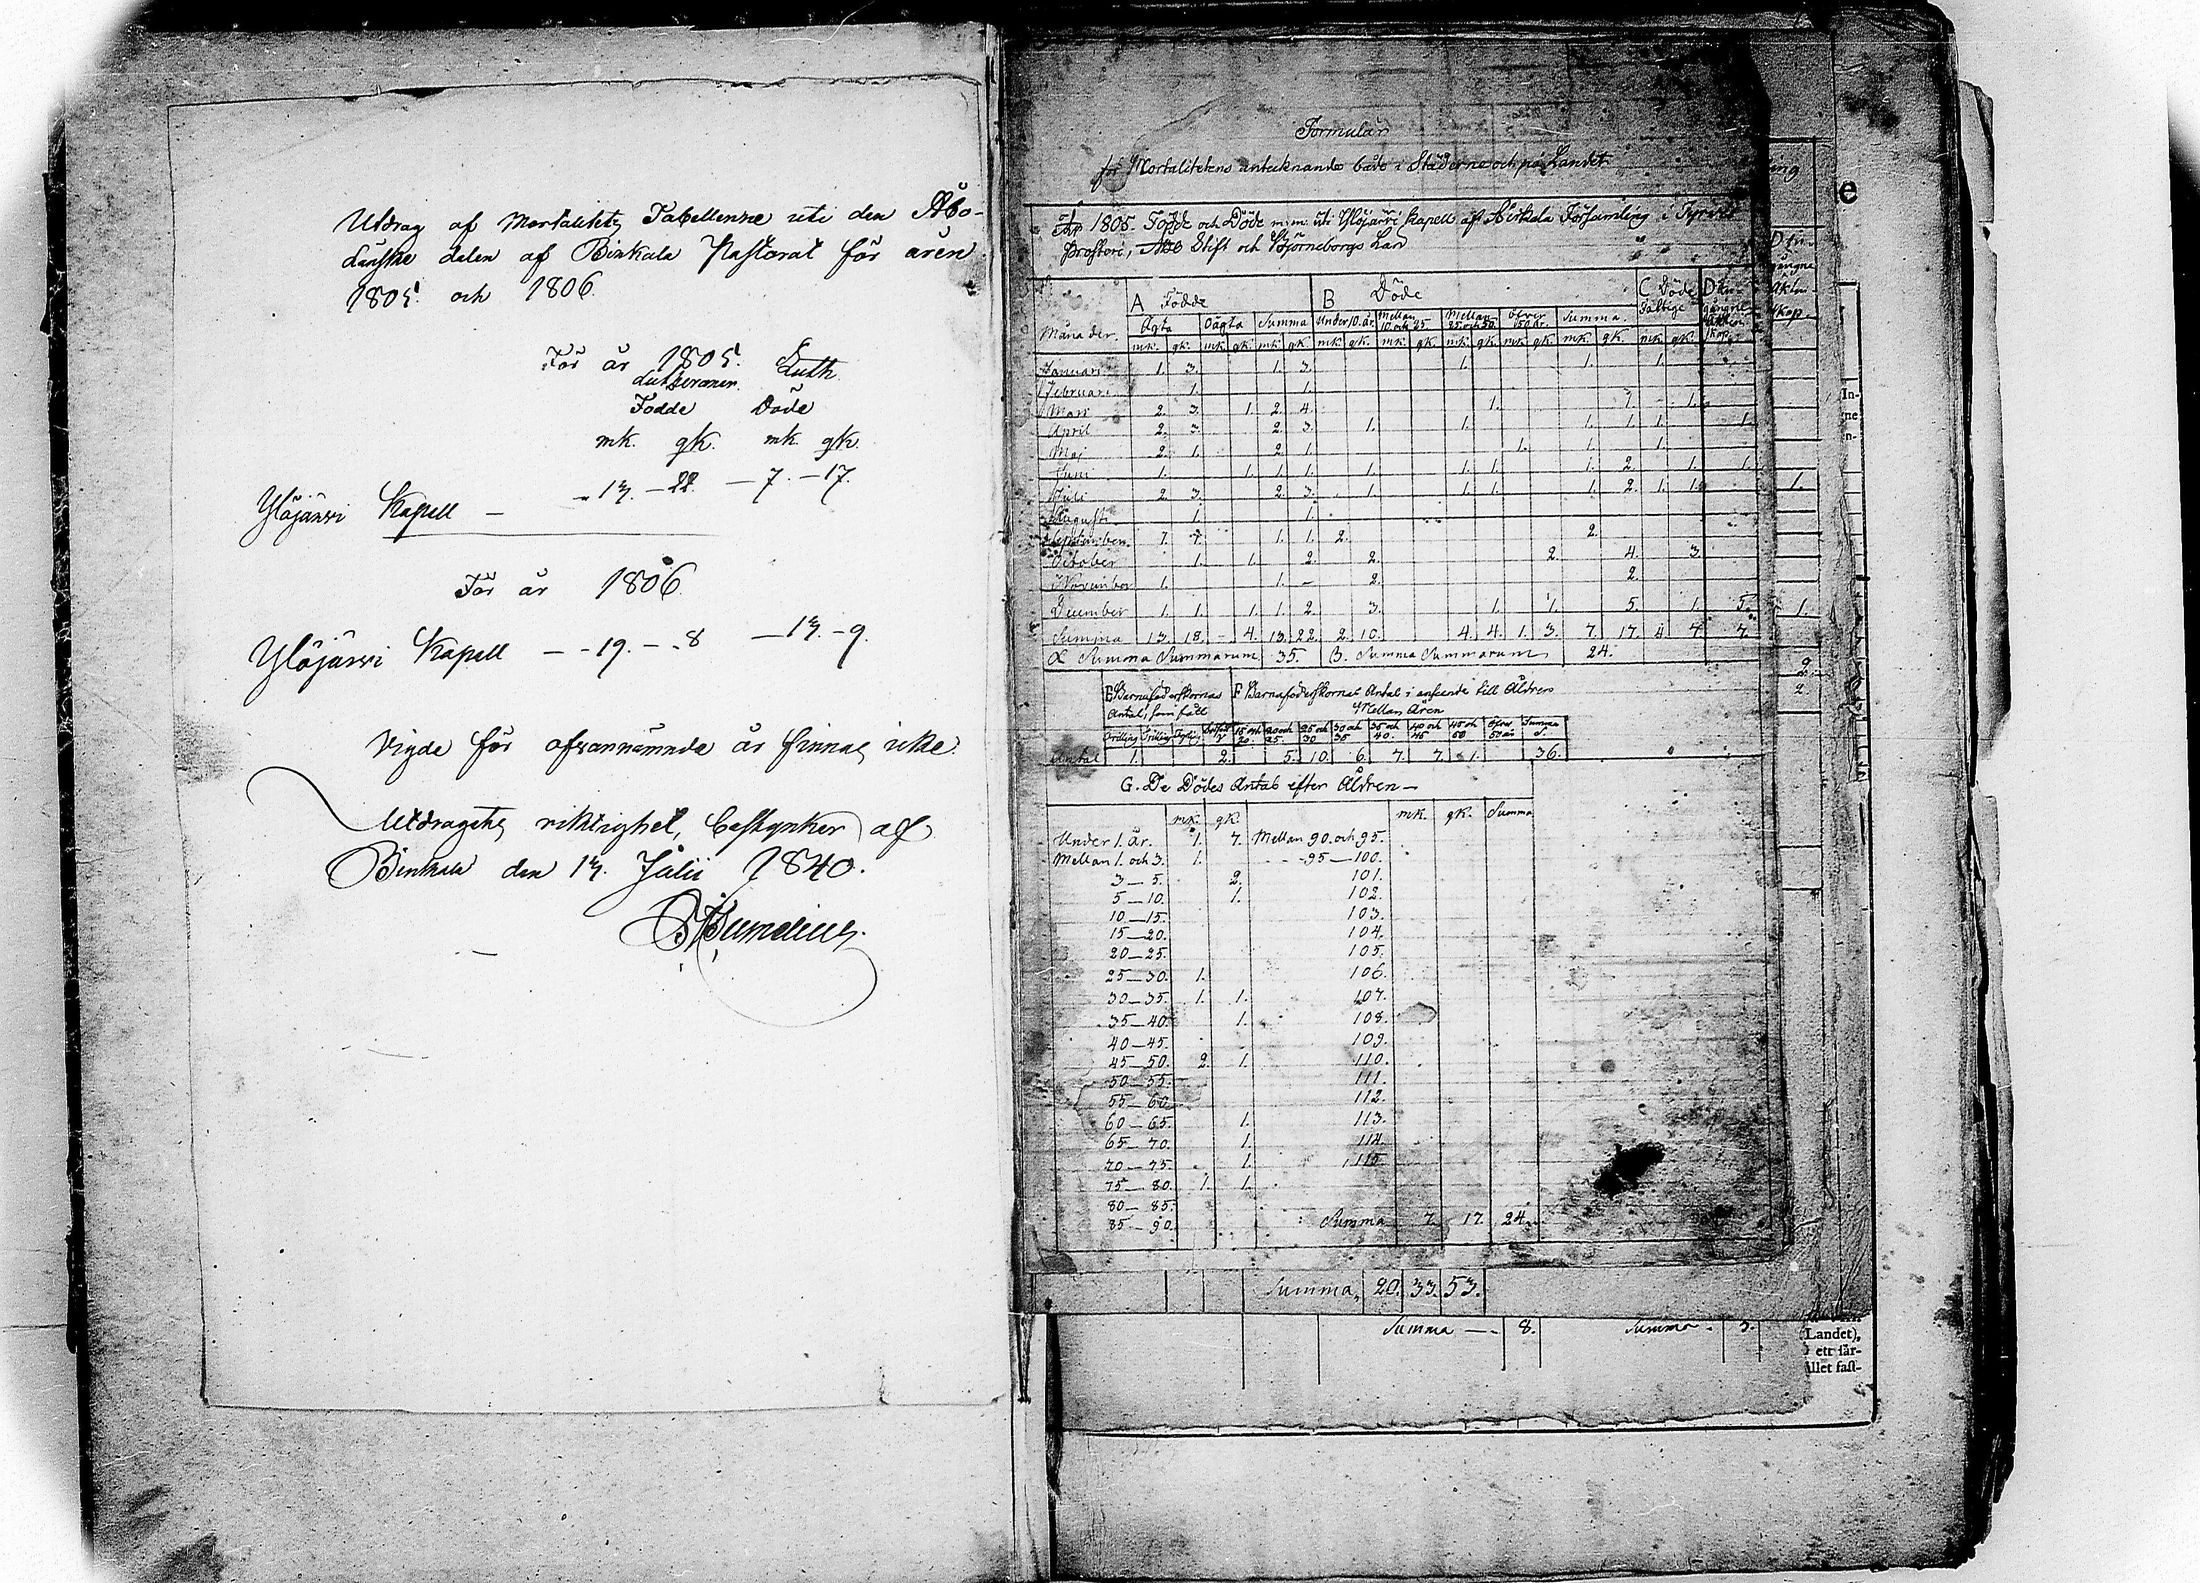 Utdrag af Mortalitets Tabellerne uti den Åbo-
länske delen af Birkala Pastorat för åren
1805. och 1806.
För år 1805.
Lutheraner. Luth.
Födde Döde
mk. qk. mk. qk.
Ylöjärvi Kapell — - 13. - 22. - 7. - 17.
För år 1806
Ylöjärvi Kapell - - 19. - - 8 - 13. - 9.
Vigde för ofvannämnde år finnas icke.
Utdragets riktighet, bestyrker af
Birkala den 13. Julii 1840.
Formulär
för Mortalitetens antecknande både i Städerne och på Landet
År 1805. Födde och Döde m.m. uti Ylöjärvi Kapell af Birkala Församling i Tyrvis
Prosteri, Åbo Stift och Björneborgs Län
A Födde B Döde C Döde
Månader. Ägta Oägta Summa Under 10. år. Mellan 10 och 25. Mellan 25 och 50. öfver 50 år. Summa.
mk. qk. mk. qk. mk. qk. mk. qk. mk. qk. mk. qk. mk. qk. mk. qk. mk. qk.
Januari 1. 3. 1. 3. 1. 1. 1.
Februari 1. 1.
Mars 2. 3. 1. 2. 4. 1. 1. 1.
April 2. 3. 2. 3. 1. 1. 1. 1. 1. 1.
Maj 2. 1. 2. 1. 1. 1. 1.
Juni 1. 1. 1. 1. 1. 1. 1. 1. 2. 1. 1.
Juli 2. 3. 2. 3. 1. 1. 1. 1. 2. 1. 1.
Augusti 1. 1.
September 1. 1. 1. 1. 2. 2.
October 1. 1. 2. 2. 2. 4. 3.
November 1. 1. - 2. 2.
December 1. 1. 1. 1. 2. 3. 1. 1. 5. 1. 5.
Summa 13. 18. - 4. 13. 22. 2. 10. 4. 4. 1. 3. 7. 17. 4 7 7.
A Summa Summarum 35. B. Summa Summarum 24.
E Barnaföderskornas F Barnaföderskornas Antal i anseende till Åldren
Antal, som fått Mellan Åren
15 och 20. 20 och 25. 25 och 30 30 och 35 35 och 40. 40 och 45 45 och 50 öfver 50 år Summa
Antal 1. 2. 5. 10. 6. 7. 7. 1. 36.
G. De Dödes Antal efter Åldren —
mk. qk. mk. qk. Summa
Under 1. År. 1. 7. Mellan 90. och 95.
Mellan 1. och 3. 1. - - 95 — 100.
3 — 5. 2. 101.
5 — 10. 1. 102.
10 — 15. 103.
15 — 20. 104.
20 — 25. 105.
25 — 30. 1. 106.
30 — 35. 1. 1. 107.
35 — 40. 1. 108.
40 — 45. 109.
45 — 50. 2. 1. 110.
50 — 55. 111.
55 — 60 112.
60 — 65. 1. 113.
65 — 70. 1. 114.
70 — 75. 1. 115.
75 — 80. 1. 1.
80 — 85.
85 — 90. Summa 7. 17. 24.
Summa, 20. 33. 53.
Summa — 8. Summa . 3.
Landet),
ett sär-
llet fast-